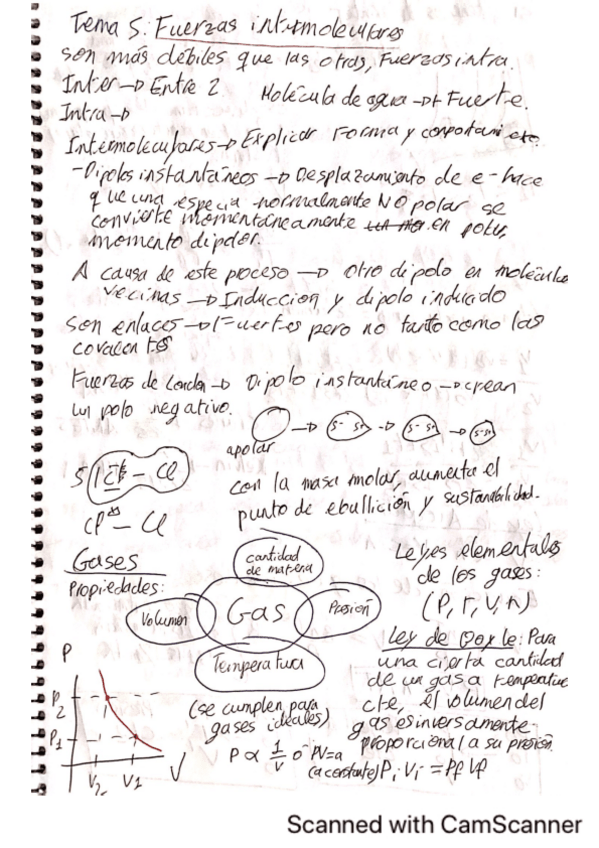 Tema 5: Fuerzas intermoleculares
son más débiles que las otras, Fuerzas intra.
Inter → Entre 2 Molécula de agua → + Fuerte.
Intra →
Intermoleculares → Explicar Forma y comportamiento
- Dipolos instantáneos → Desplazamiento de e- hace
que una especia normalmente NO polar se
convierte momentáneamente en polar,
momento dipolar.
A causa de este proceso → otro dipolo en molécula
vecinas → Induccion y dipolo inducido
son enlaces → Fuertes pero no tanto como los
covalentes
Fuerzas de London → Dipolo instantáneo → crean
un polo negativo.
apolar
Cl - Cl
con la masa molar, aumenta el
punto de ebullición y
Gases
Propiedades:
cantidad
de materia
Volumen
Gas
Presión
Temperatura
(se cumplen para
gases ideales)
P ∝ 1/V o PV=a
(a constante)
P
P2
P1
V2 V1 V
Leyes elementales
de los gases:
(P, T, V, n)
Ley de Boyle: Para
una cierta cantidad
de un gas a temperatura
cte, el volumen del
gas es inversamente
proporcional a su presión.
Pi Vi = Pf Vf
Scanned with CamScanner